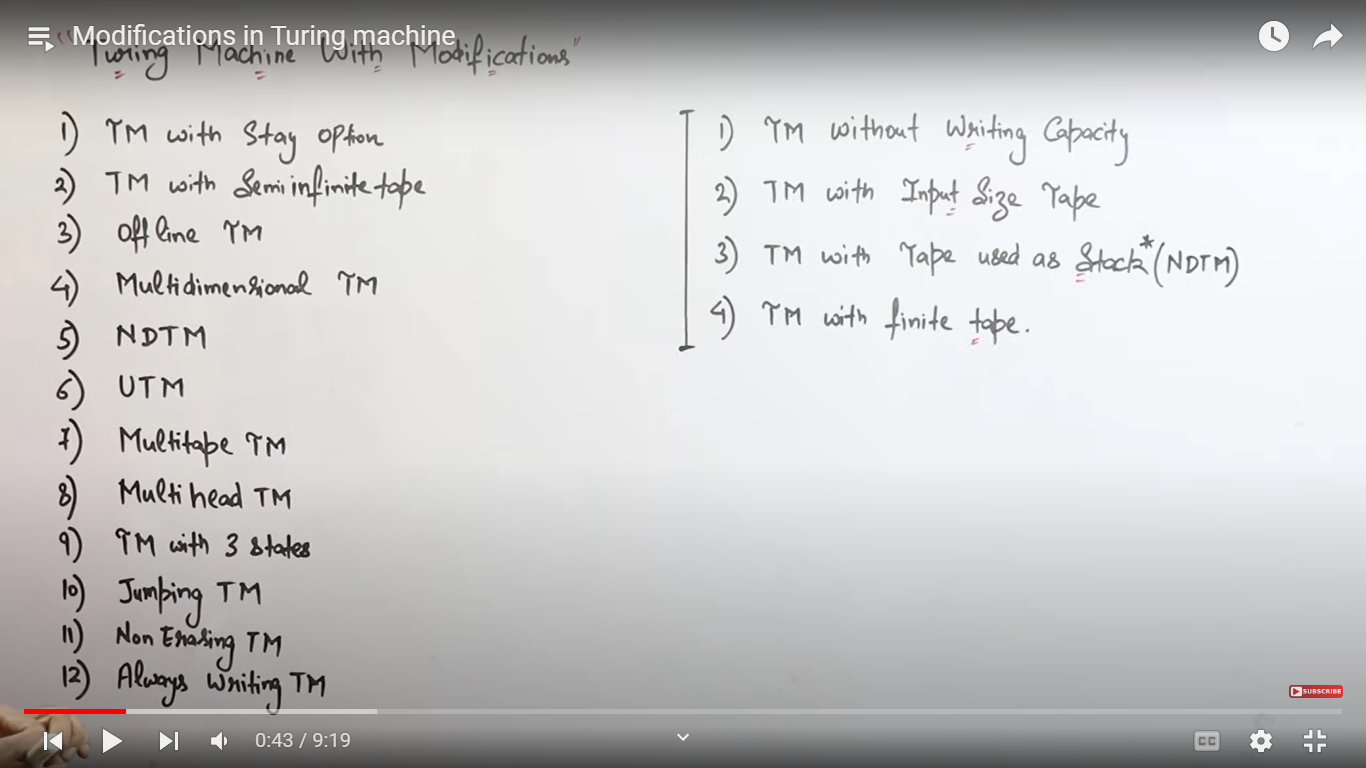 Modifications in Turing machine
"Turing Machine With Modifications"
1) TM with Stay option
2) TM with Semi infinite tape
3) Offline TM
4) Multidimensional TM
5) NDTM
6) UTM
7) Multitape TM
8) Multi head TM
9) TM with 3 states
10) Jumping TM
11) Non Erasing TM
12) Always Writing TM
1) TM without Writing Capacity
2) TM with Input Size Tape
3) TM with Tape used as Stack* (NDTM)
4) TM with finite tape.
SUBSCRIBE
0:43 / 9:19
CC